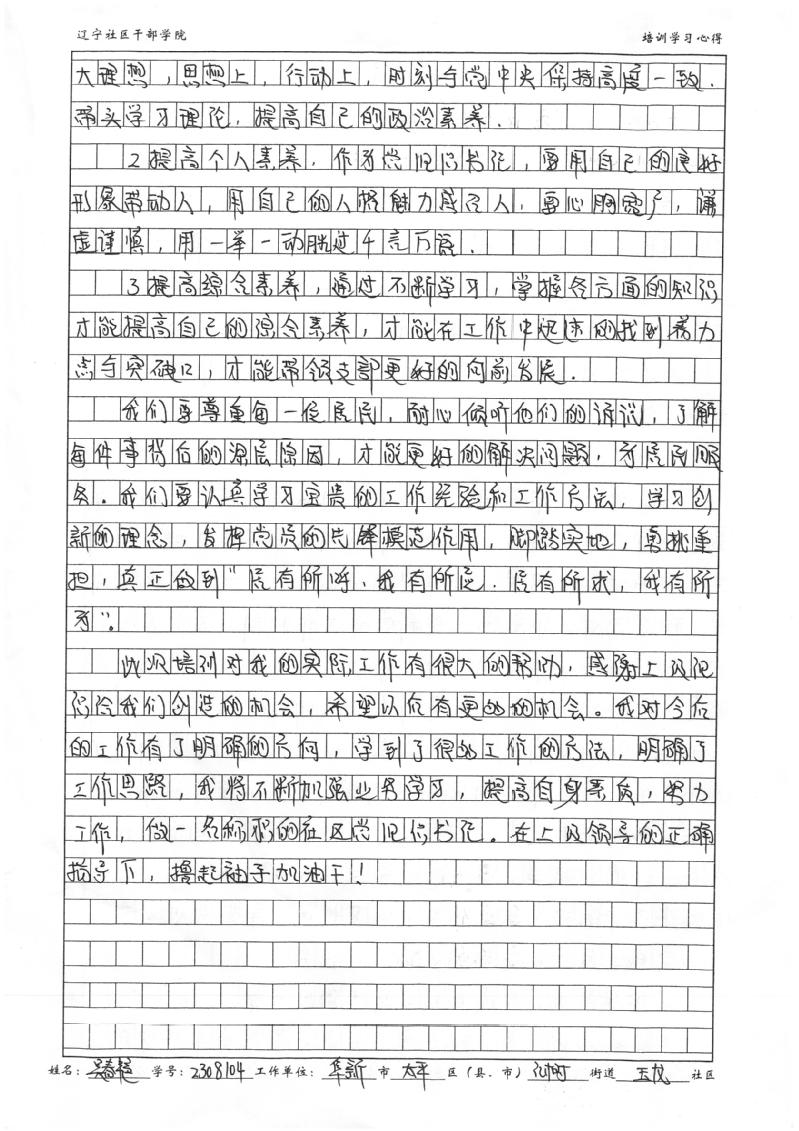 辽宁社区干部学院 培训学习心得
大理想，思想上，行动上，时刻与党中央保持高度一致.
带头学习理论，提高自己的政治素养.
2提高个人素养，作为党组织书记，要用自己的良好
形象带动人，用自己的人格魅力感召人，要心胸宽广，谦
虚谨慎，用一举一动胜过千言万语.
3提高综合素养，通过不断学习，掌握各方面的知识
才能提高自己的综合素养，才能在工作中迅速的找到着力
点与突破口，才能带领支部更好的向前发展.
我们要尊重每一位居民，耐心倾听他们的诉说，了解
每件事背后的深层原因，才能更好的解决问题，为居民服
务。我们要认真学习宝贵的工作经验和工作方法，学习创
新的理念，发挥党员的先锋模范作用，脚踏实地，勇挑重
担，真正做到“居有所呼、我有所应.居有所求，我有所
为”。
此次培训对我的实际工作有很大的帮助，感谢上级组
织给我们创造的机会，希望以后有更多的机会。我对今后
的工作有了明确的方向，学到了很多工作的方法，明确了
工作思路，我将不断加强业务学习，提高自身素质，努力
工作，做一名称职的社区党组织书记。在上级领导的正确
指导下，撸起袖子加油干！
姓名： 学号：2308104 工作单位：阜新 市 太平 区（县、市） 街道 社区